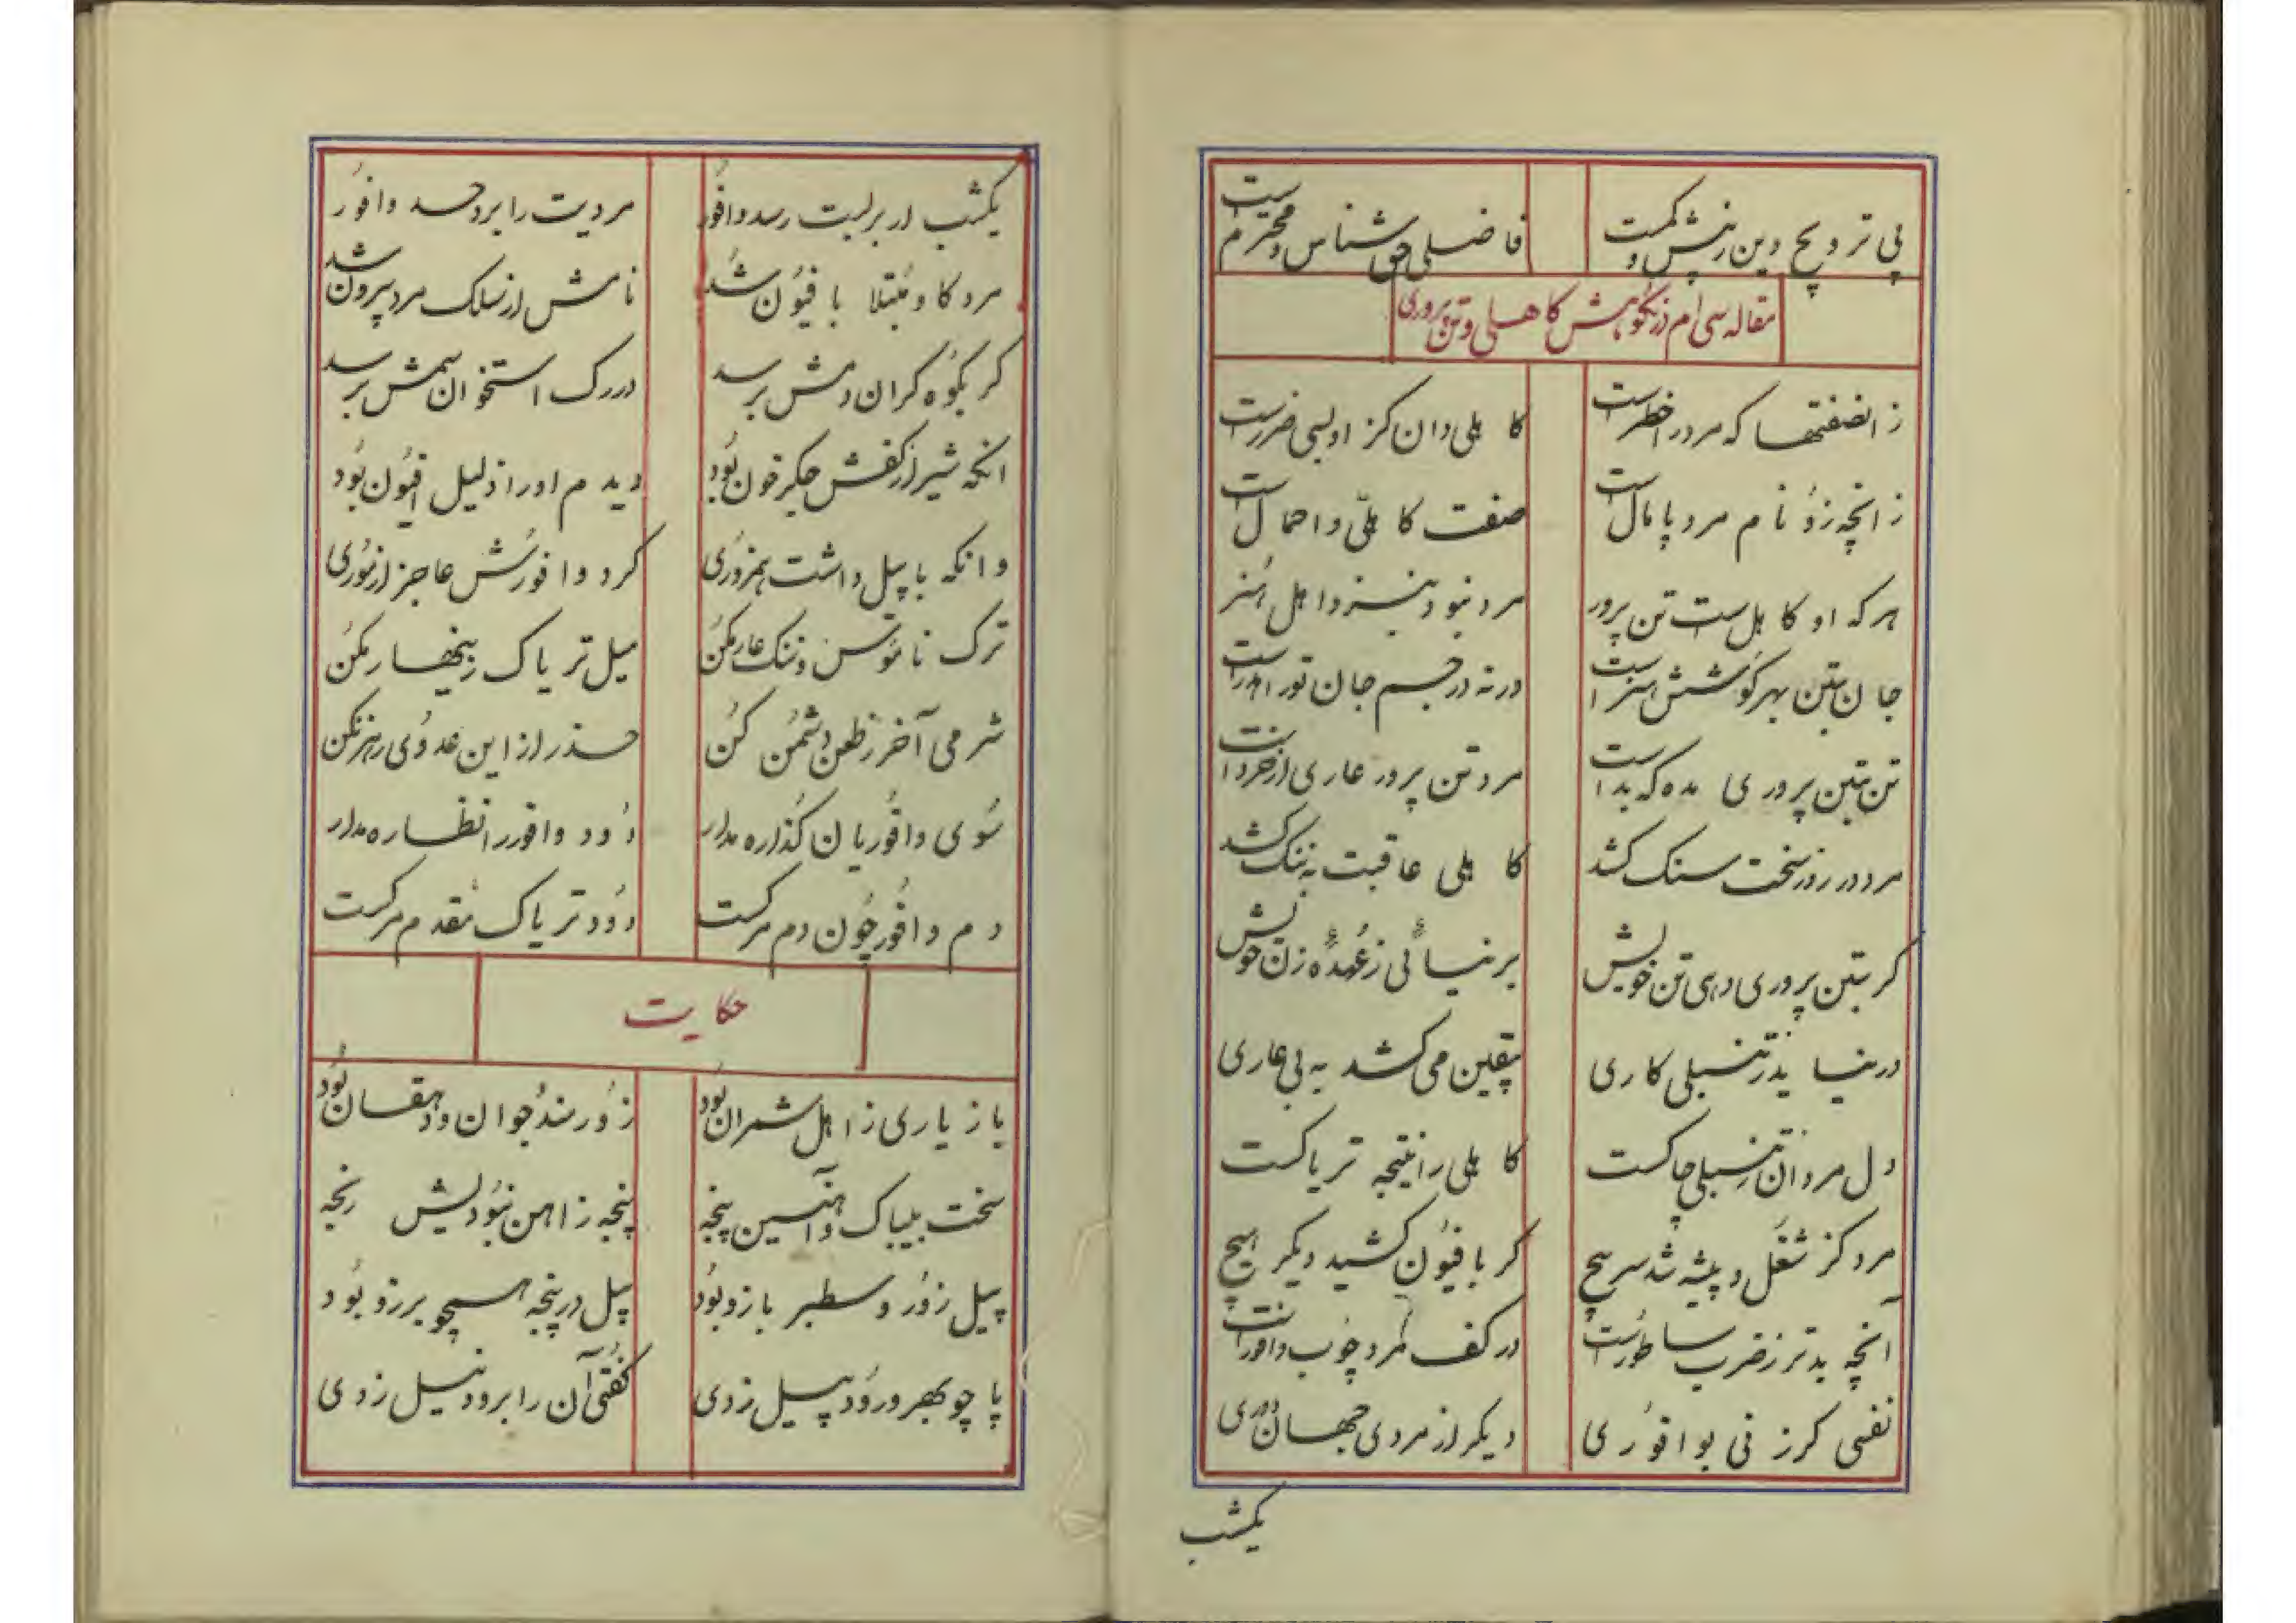 پی ترویج دین رنپش و کمست فاضلی حق شناس و محترم است
مقاله سی ام در نکوهش کاهلی و تن پروری
ز انصفتها که مرد را خطر است کاهلی دان کز او بسی ضرر است
ز انچه زو نام مرد پامال است صفت کاهلی و احمال است
هر که او کاهل است تن پرور مرد نبود بنزد اهل هنر
جان بتن بهر کوشش هنر است ورنه در جسم جان تو را هدر است
تن بتن پروری مده که بد است مرد تن پرور عاری از خرد است
مرد در روز سخت سنک کشد کاهلی عاقبت به ننک کشد
کر بتن پروری دهی تن خویش بر نیائی ز عهدهٔ زن خویش
در نیاید ز تنبلی کاری بیقین می کشد به بی عاری
دل مردان ز تنبلی چاکست کاهلی را نتیجه تریاکست
مرد کز شغل و پیشه شد سرپیچ کر بافیون کشید دیکر هیچ
آنچه بدتر ز ضرب ساطور است در کف مرد چوب وافور است
نفسی کر ز نی بوافوری دیکر از مردی جهان دوری
یکشب
یکشب ار بر لبت رسد وافور مردیت را برد حسد وافور
مرد کاو مبتلا بافیون شد نامش از سلک مرد بیرون شد
کر بکوه کران دمش برسد در رک استخوان سمش برسد
انکه شیر از کفش جکر خون بود دیدم او را ذلیل افیون بود
وانکه با پیل داشت همزوری کرد وافورش عاجز از موری
ترک ناموس و ننک عار مکن میل تریاک زینهار مکن
شرمی آخر ز طعن دشمن کن حذر از این عدوی رهزن کن
سوی وافوریان کذاره مدار دود وافور را نظاره مدار
دم وافور چون دم مرکست دود تریاک مقدم مرکست
حکایت
بازیاری ز اهل شمران بود زورمند جوان و دهقان بود
سخت بیباک و آهنین پنجه پنجه ز اهن نبودیش رنجه
پیل زور و سطبر بازو بود پیل در پنجه همچو برزو بود
پا چو بهر ورود بیل زدی کفتی آن را برود نیل زدی